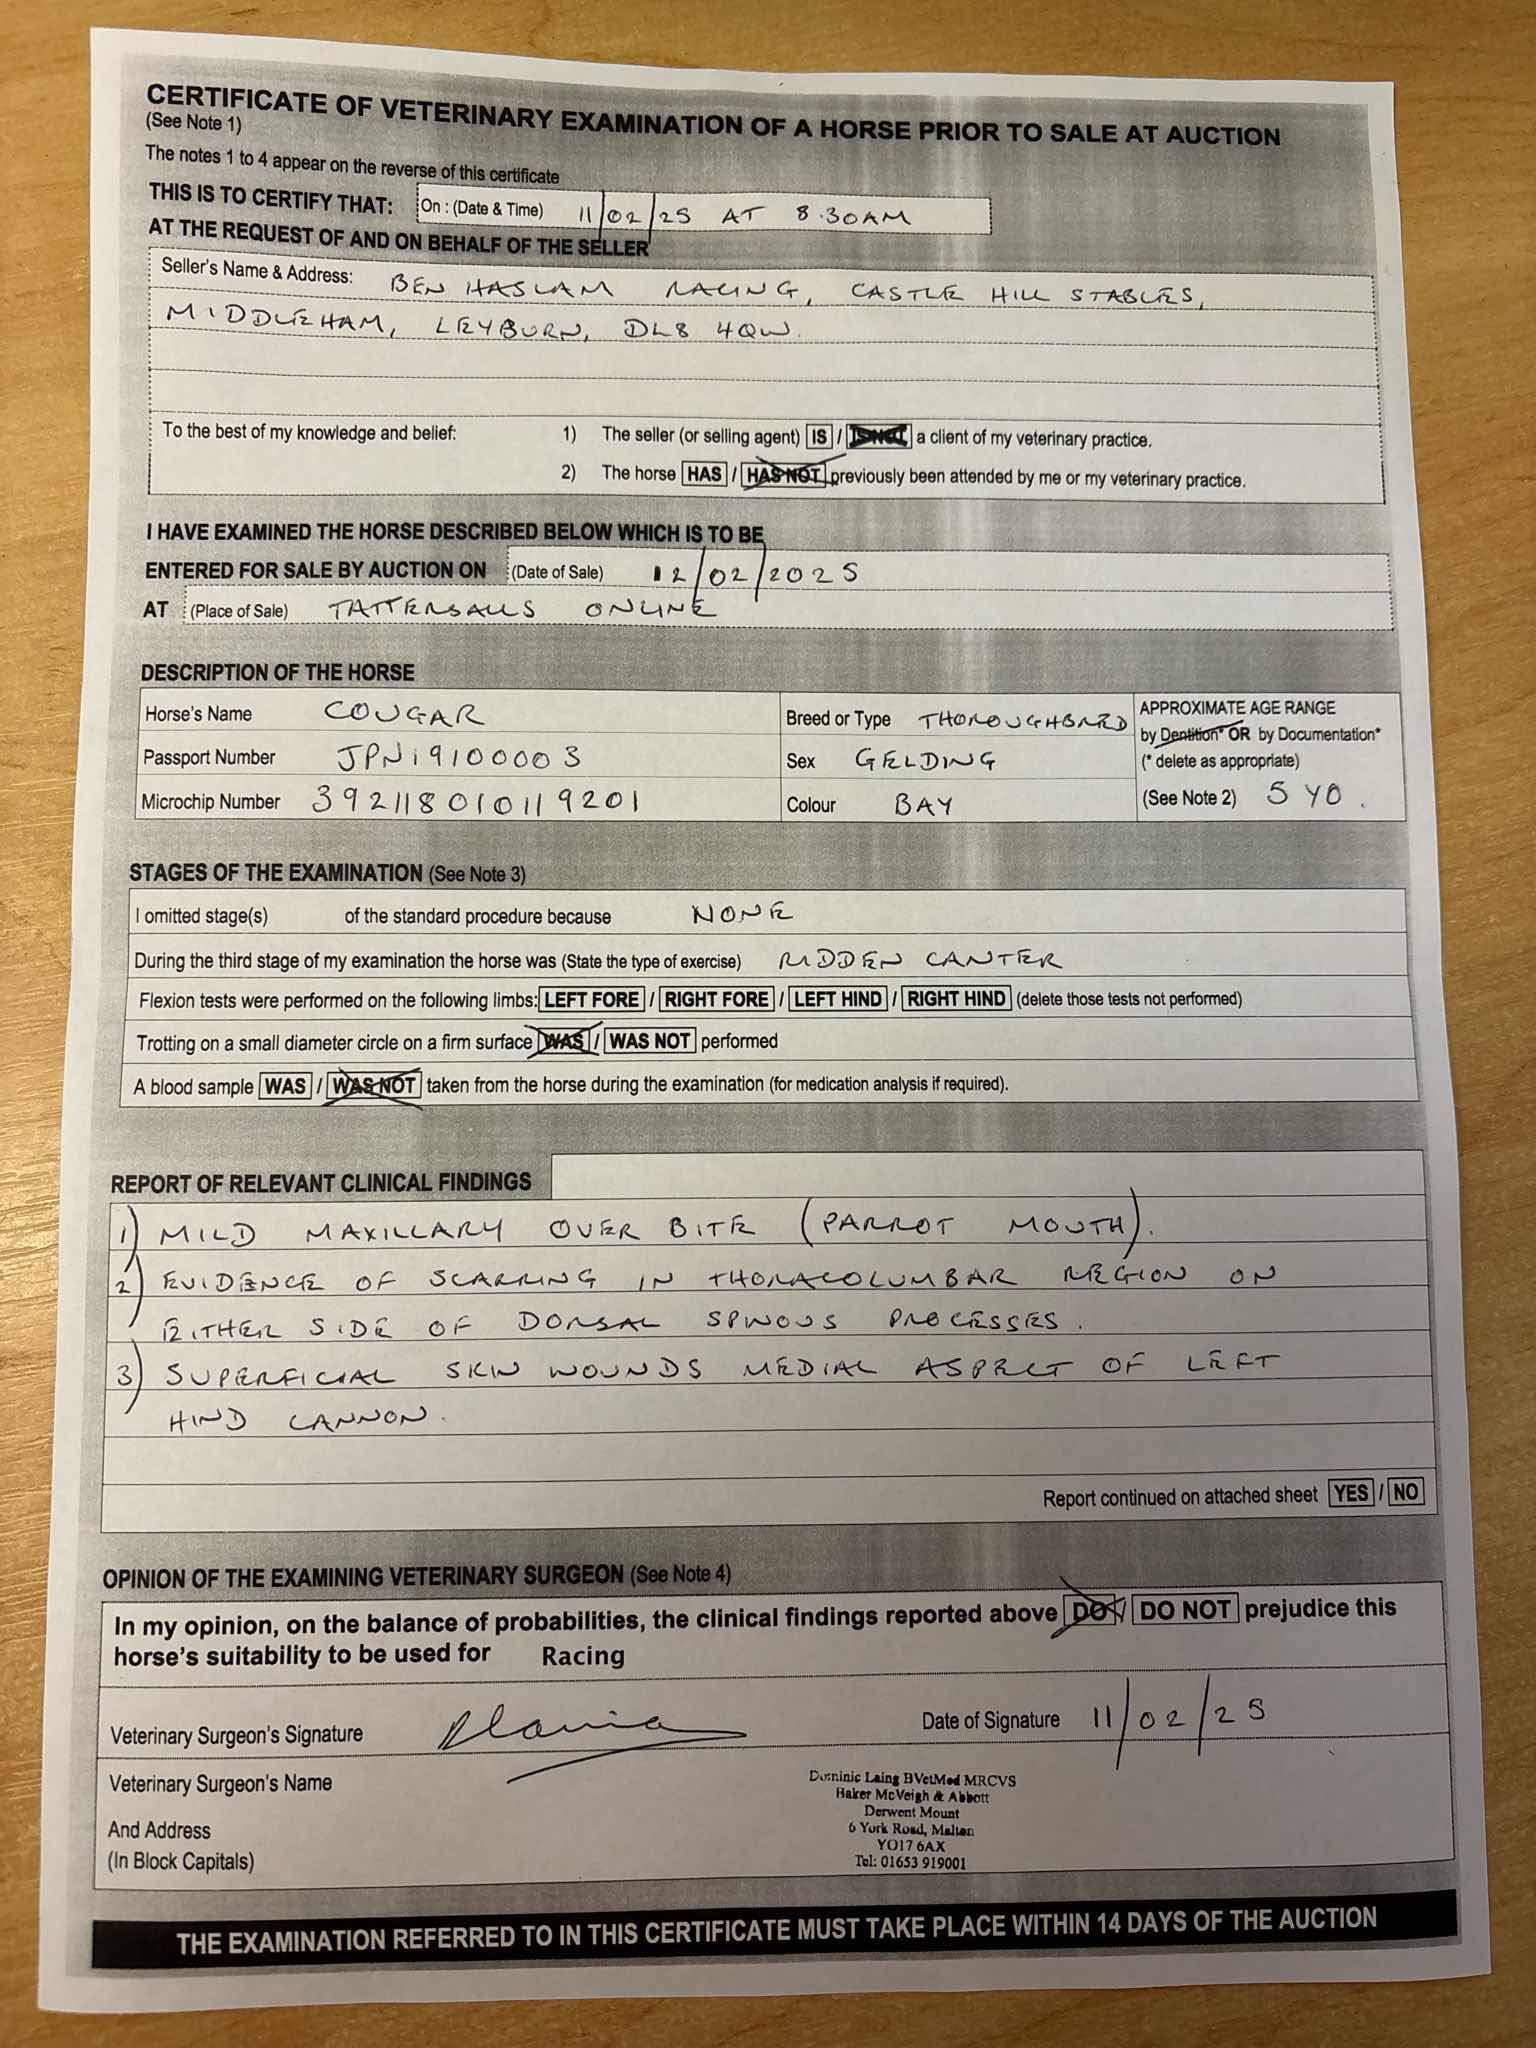 CERTIFICATE OF VETERINARY EXAMINATION OF A HORSE PRIOR TO SALE AT AUCTION
(See Note 1)
The notes 1 to 4 appear on the reverse of this certificate
THIS IS TO CERTIFY THAT: On : (Date & Time) 11/02/25 AT 8.30AM
AT THE REQUEST OF AND ON BEHALF OF THE SELLER
Seller's Name & Address: BEN HASLAM RACING, CASTLE HILL STABLES,
MIDDLEHAM, LEYBURN, DL8 4QW.
To the best of my knowledge and belief: 1) The seller (or selling agent) IS / IS NOT a client of my veterinary practice.
2) The horse HAS / HAS NOT previously been attended by me or my veterinary practice.
I HAVE EXAMINED THE HORSE DESCRIBED BELOW WHICH IS TO BE
ENTERED FOR SALE BY AUCTION ON (Date of Sale) 12/02/2025
AT (Place of Sale) TATTERSALLS ONLINE
DESCRIPTION OF THE HORSE
Horse's Name COUGAR
Passport Number JPN19100003
Microchip Number 392118010119201
Breed or Type THOROUGHBRED
Sex GELDING
Colour BAY
APPROXIMATE AGE RANGE
by Dentition* OR by Documentation*
(* delete as appropriate)
(See Note 2) 5 YO.
STAGES OF THE EXAMINATION (See Note 3)
I omitted stage(s) of the standard procedure because NONE
During the third stage of my examination the horse was (State the type of exercise) RIDDEN CANTER
Flexion tests were performed on the following limbs: LEFT FORE / RIGHT FORE / LEFT HIND / RIGHT HIND (delete those tests not performed)
Trotting on a small diameter circle on a firm surface WAS / WAS NOT performed
A blood sample WAS / WAS NOT taken from the horse during the examination (for medication analysis if required).
REPORT OF RELEVANT CLINICAL FINDINGS
1) MILD MAXILLARY OVER BITE (PARROT MOUTH).
2) EVIDENCE OF SCARRING IN THORACOLUMBAR REGION ON
EITHER SIDE OF DORSAL SPINOUS PROCESSES.
3) SUPERFICIAL SKIN WOUNDS MEDIAL ASPECT OF LEFT
HIND CANNON.
Report continued on attached sheet YES / NO
OPINION OF THE EXAMINING VETERINARY SURGEON (See Note 4)
In my opinion, on the balance of probabilities, the clinical findings reported above DO / DO NOT prejudice this
horse's suitability to be used for Racing
Veterinary Surgeon's Signature
Date of Signature 11/02/25
Veterinary Surgeon's Name
And Address
(In Block Capitals)
Dominic Laing BVetMed MRCVS
Baker McVeigh & Abbott
Derwent Mount
6 York Road, Malton
YO17 6AX
Tel: 01653 919001
THE EXAMINATION REFERRED TO IN THIS CERTIFICATE MUST TAKE PLACE WITHIN 14 DAYS OF THE AUCTION